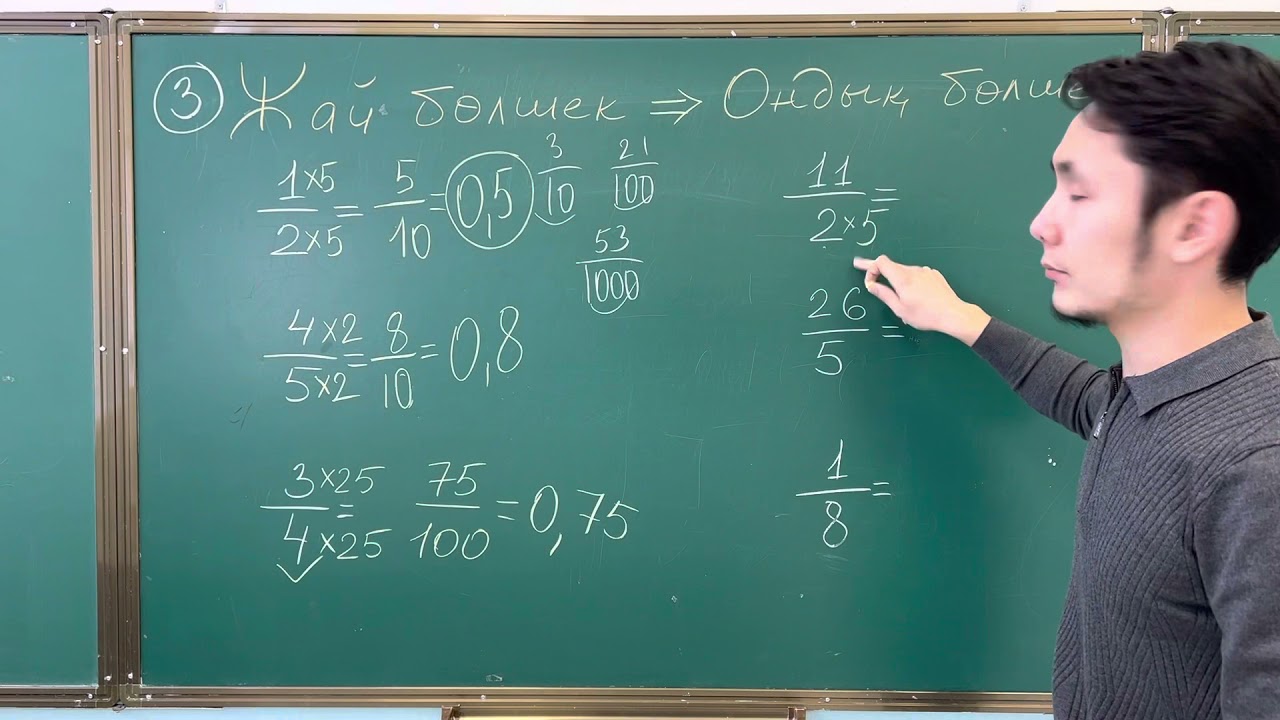 3 Жай бөлшек ⇒ Ондық бөлше
1×5/2×5 = 5/10 = 0,5
3/10
21/100
53/1000
4×2/5×2 = 8/10 = 0,8
3×25/4×25 = 75/100 = 0,75
11/2×5 =
26/5 =
1/8 =